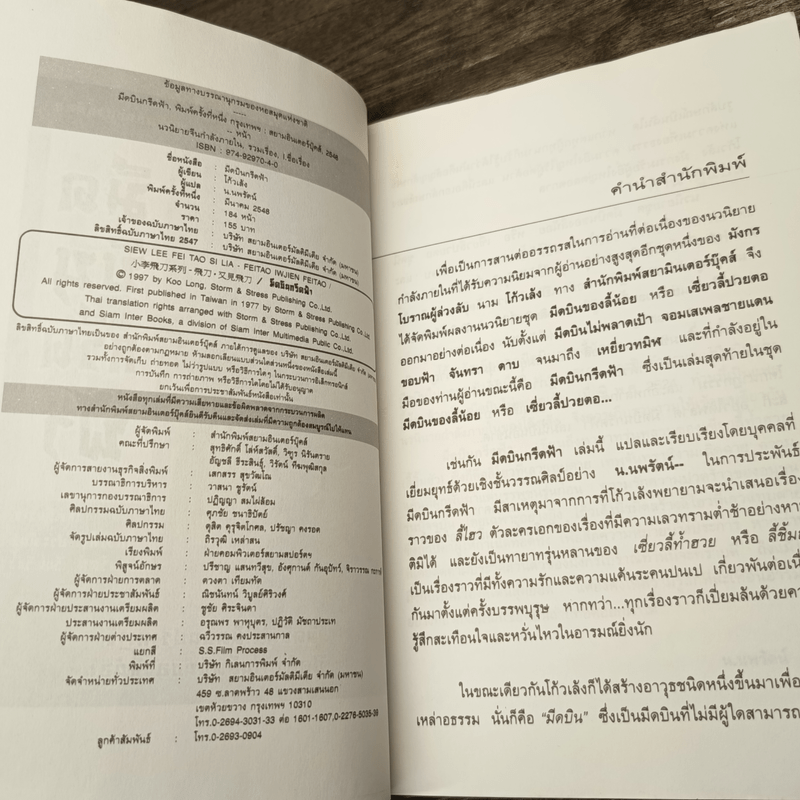 ข้อมูลทางบรรณานุกรมของหอสมุดแห่งชาติ
มีดบินกรีดฟ้า, พิมพ์ครั้งที่หนึ่ง กรุงเทพฯ : สยามอินเตอร์บุ๊คส์, 2548
-- หน้า
นวนิยายจีนกำลังภายใน, รวมเรื่อง, I.ชื่อเรื่อง
ISBN : 974-92970-4-0
ชื่อหนังสือ : มีดบินกรีดฟ้า
ผู้เขียน : โก้วเล้ง
ผู้แปล : น.นพรัตน์
พิมพ์ครั้งที่หนึ่ง : มีนาคม 2548
จำนวน : 184 หน้า
ราคา : 155 บาท
เจ้าของฉบับภาษาไทย : บริษัท สยามอินเตอร์มัลติมีเดีย จำกัด (มหาชน)
ลิขสิทธิ์ฉบับภาษาไทย 2547 : บริษัท สยามอินเตอร์มัลติมีเดีย จำกัด (มหาชน)
SIEW LEE FEI TAO SI LIA - FEITAO IWJIEN FEITAO /
小李飛刀系列 - 飛刀 · 又見飛刀 / มีดบินกรีดฟ้า
© 1997 by Koo Long, Storm & Stress Publishing Co.,Ltd.
All rights reserved. First published in Taiwan in 1977 by Storm & Stress Publishing Co.,Ltd.
Thai translation rights arranged with Storm & Stress Publishing Co.,Ltd.
and Siam Inter Books, a division of Siam Inter Multimedia Public Co.,Ltd.
ลิขสิทธิ์ฉบับภาษาไทยเป็นของ สำนักพิมพ์สยามอินเตอร์บุ๊คส์ ภายใต้การดูแลของ บริษัท สยามอินเตอร์มัลติมีเดีย จำกัด
อย่างถูกต้องตามกฎหมาย ห้ามลอกเลียนแบบส่วนใดส่วนหนึ่งของหนังสือเล่มนี้
รวมทั้งการจัดเก็บ ถ่ายทอด ไม่ว่ารูปแบบ หรือวิธีการใดๆ ในกระบวนการอิเล็กทรอนิกส์
การบันทึก การถ่ายภาพ หรือวิธีการใดโดยไม่ได้รับอนุญาต
ยกเว้นเพื่อการประชาสัมพันธ์หนังสือเท่านั้น
หนังสือทุกเล่มที่มีความเสียหายและข้อผิดพลาดจากกระบวนการผลิต
ทางสำนักพิมพ์สยามอินเตอร์บุ๊คส์ยินดีรับคืนและจัดส่งเล่มที่มีความถูกต้องสมบูรณ์ไปให้แทน
ผู้จัดพิมพ์ : สำนักพิมพ์สยามอินเตอร์บุ๊คส์
คณะที่ปรึกษา : สุทธิศักดิ์ โล่ห์สวัสดิ์, วิฑูร นิรันตราย
อัญชลี ธีระสินธุ์, วิรัตน์ ทีฆพุฒิสกุล
ผู้จัดการสายงานธุรกิจสิ่งพิมพ์ : เสกสรร สุขวัฒโณ
บรรณาธิการบริหาร : วาสนา ชูรัตน์
เลขานุการกองบรรณาธิการ : ปฏิญญา สมไผ่ล้อม
ศิลปกรรมฉบับภาษาไทย : ศุภชัย ชนาธิปัตย์
ศิลปกรรม : ดุสิต คุรุจิตโกศล, ปรัชญา คงรอด
จัดรูปเล่มฉบับภาษาไทย : ถิรวุฒิ เหล่าสน
เรียงพิมพ์ : ฝ่ายคอมพิวเตอร์สยามสปอร์ตฯ
พิสูจน์อักษร : ปรีชาญ แสนทวีสุข, อังศุกานต์ กันอุปัทว์, จิราวรรณ
ผู้จัดการฝ่ายการตลาด : ดวงตา เทียมทัด
ผู้จัดการฝ่ายประชาสัมพันธ์ : ณิชนันทน์ วิบูลย์ศิริวงศ์
ผู้จัดการฝ่ายประสานงานเตรียมผลิต : ชูชัย ศิระจินดา
ประสานงานเตรียมผลิต : อรุณพร พาหุบุตร, ปฏิวัติ มัชฌาประเท
ผู้จัดการฝ่ายต่างประเทศ : ฉวีวรรณ คงประสานกาล
แยกสี : S.S.Film Process
พิมพ์ที่ : บริษัท กิเลนการพิมพ์ จำกัด
จัดจำหน่ายทั่วประเทศ : บริษัท สยามอินเตอร์มัลติมีเดีย จำกัด (มหาชน)
459 ซ.ลาดพร้าว 48 แขวงสามเสนนอก
เขตห้วยขวาง กรุงเทพฯ 10310
โทร.0-2694-3031-33 ต่อ 1601-1607,0-2276-5035-39
ลูกค้าสัมพันธ์ : โทร.0-2693-0904
คำนำสำนักพิมพ์
เพื่อเป็นการสานต่ออรรถรสในการอ่านที่ต่อเนื่องของนวนิยาย
กำลังภายในที่ได้รับความนิยมจากผู้อ่านอย่างสูงสุดอีกชุดหนึ่งของ มังกร
โบราณผู้ล่วงลับ นาม โก้วเล้ง ทาง สำนักพิมพ์สยามอินเตอร์บุ๊คส์ จึง
ได้จัดพิมพ์ผลงานนวนิยายชุด มีดบินของลี้น้อย หรือ เซี่ยวลี้ปวยตอ
ออกมาอย่างต่อเนื่อง นับตั้งแต่ มีดบินไม่พลาดเป้า จอมเสเพลชายแดน
ขอบฟ้า จันทรา ดาบ จนมาถึง เหยี่ยวทมิฬ และที่กำลังอยู่ใน
มือของท่านผู้อ่านขณะนี้คือ มีดบินกรีดฟ้า ซึ่งเป็นเล่มสุดท้ายในชุด
มีดบินของลี้น้อย หรือ เซี่ยวลี้ปวยตอ...
เช่นกัน มีดบินกรีดฟ้า เล่มนี้ แปลและเรียบเรียงโดยบุคคลที่
เยี่ยมยุทธ์ด้วยเชิงชั้นวรรณศิลป์อย่าง น.นพรัตน์-- ในการประพันธ์
มีดบินกรีดฟ้า มีสาเหตุมาจากการที่โก้วเล้งพยายามจะนำเสนอเรื่อง
ราวของ ลี้ไฮว ตัวละครเอกของเรื่องที่มีความเลวทรามต่ำช้าอย่างหา
ติมิได้ และยังเป็นทายาทรุ่นหลานของ เซี่ยวลี้ท้ำฮวย หรือ ลี้ชิ้ม
เป็นเรื่องราวที่มีทั้งความรักและความแค้นระคนปนเป เกี่ยวพันต่อเนื่
กันมาตั้งแต่ครั้งบรรพบุรุษ หากทว่า...ทุกเรื่องราวก็เปี่ยมล้นด้วยคว
รู้สึกสะเทือนใจและหวั่นไหวในอารมณ์ยิ่งนัก
ในขณะเดียวกันโก้วเล้งก็ได้สร้างอาวุธชนิดหนึ่งขึ้นมาเพื่อ
เหล่าอธรรม นั่นก็คือ "มีดบิน" ซึ่งเป็นมีดบินที่ไม่มีผู้ใดสามารถ